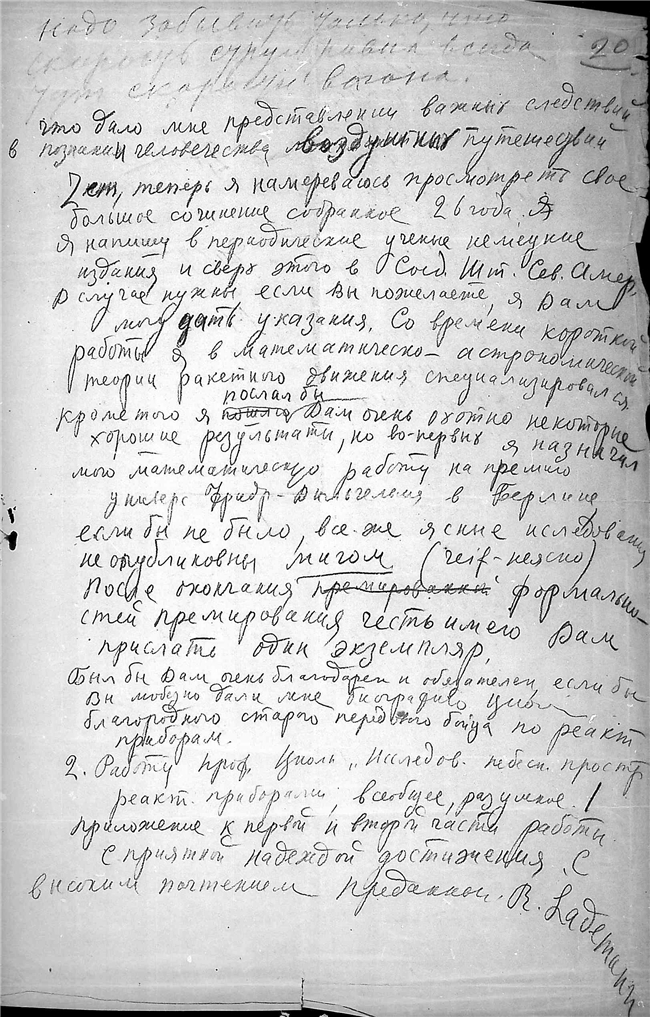 надо забывать только, что
скорость струи равна всегда
20
скорости вагона.
что дало мне представлении важных следствий
в познании человечества воздушных путешествий
теперь я намереваюсь просмотреть свое
большое сочинение собранное 26 года. Я
Я напишу в периодические ученые немецкие
издания и сверх этого в Соед. Шт. Сев. Амер.
В случае нужны если Вы пожелаете, я Вам
могу дать указания. Со времени короткой
работы я в математическо-астрономической
теории ракетного движения специализировался.
послал бы
Кроме того я пошлю Вам очень охотно некоторые
хорошие результати, но во-первых я назначил
мою математическую работу на премию
универс Фридр-Вильгельма в Берлине,
если бы не было, все-же ясные иследования
не опубликовны мигом (reif-неясно)
После окончания премированный формально-
стей премирования честь имею Вам
прислать один экземпляр,
Был бы Вам очень благодарен и обязателен, если бы
Вы любезно дали мне биографию Циол
благородного старого передового бойца по реакт
приборам.
2. Работу проф. Циолк „Исследов. небесн. простр
реакт. приборами, всеобщее, разумное. 1
приложение к первой и второй части работы.
С приятной надеждой достижения. С
высоким почтением преданной. R. Lademann